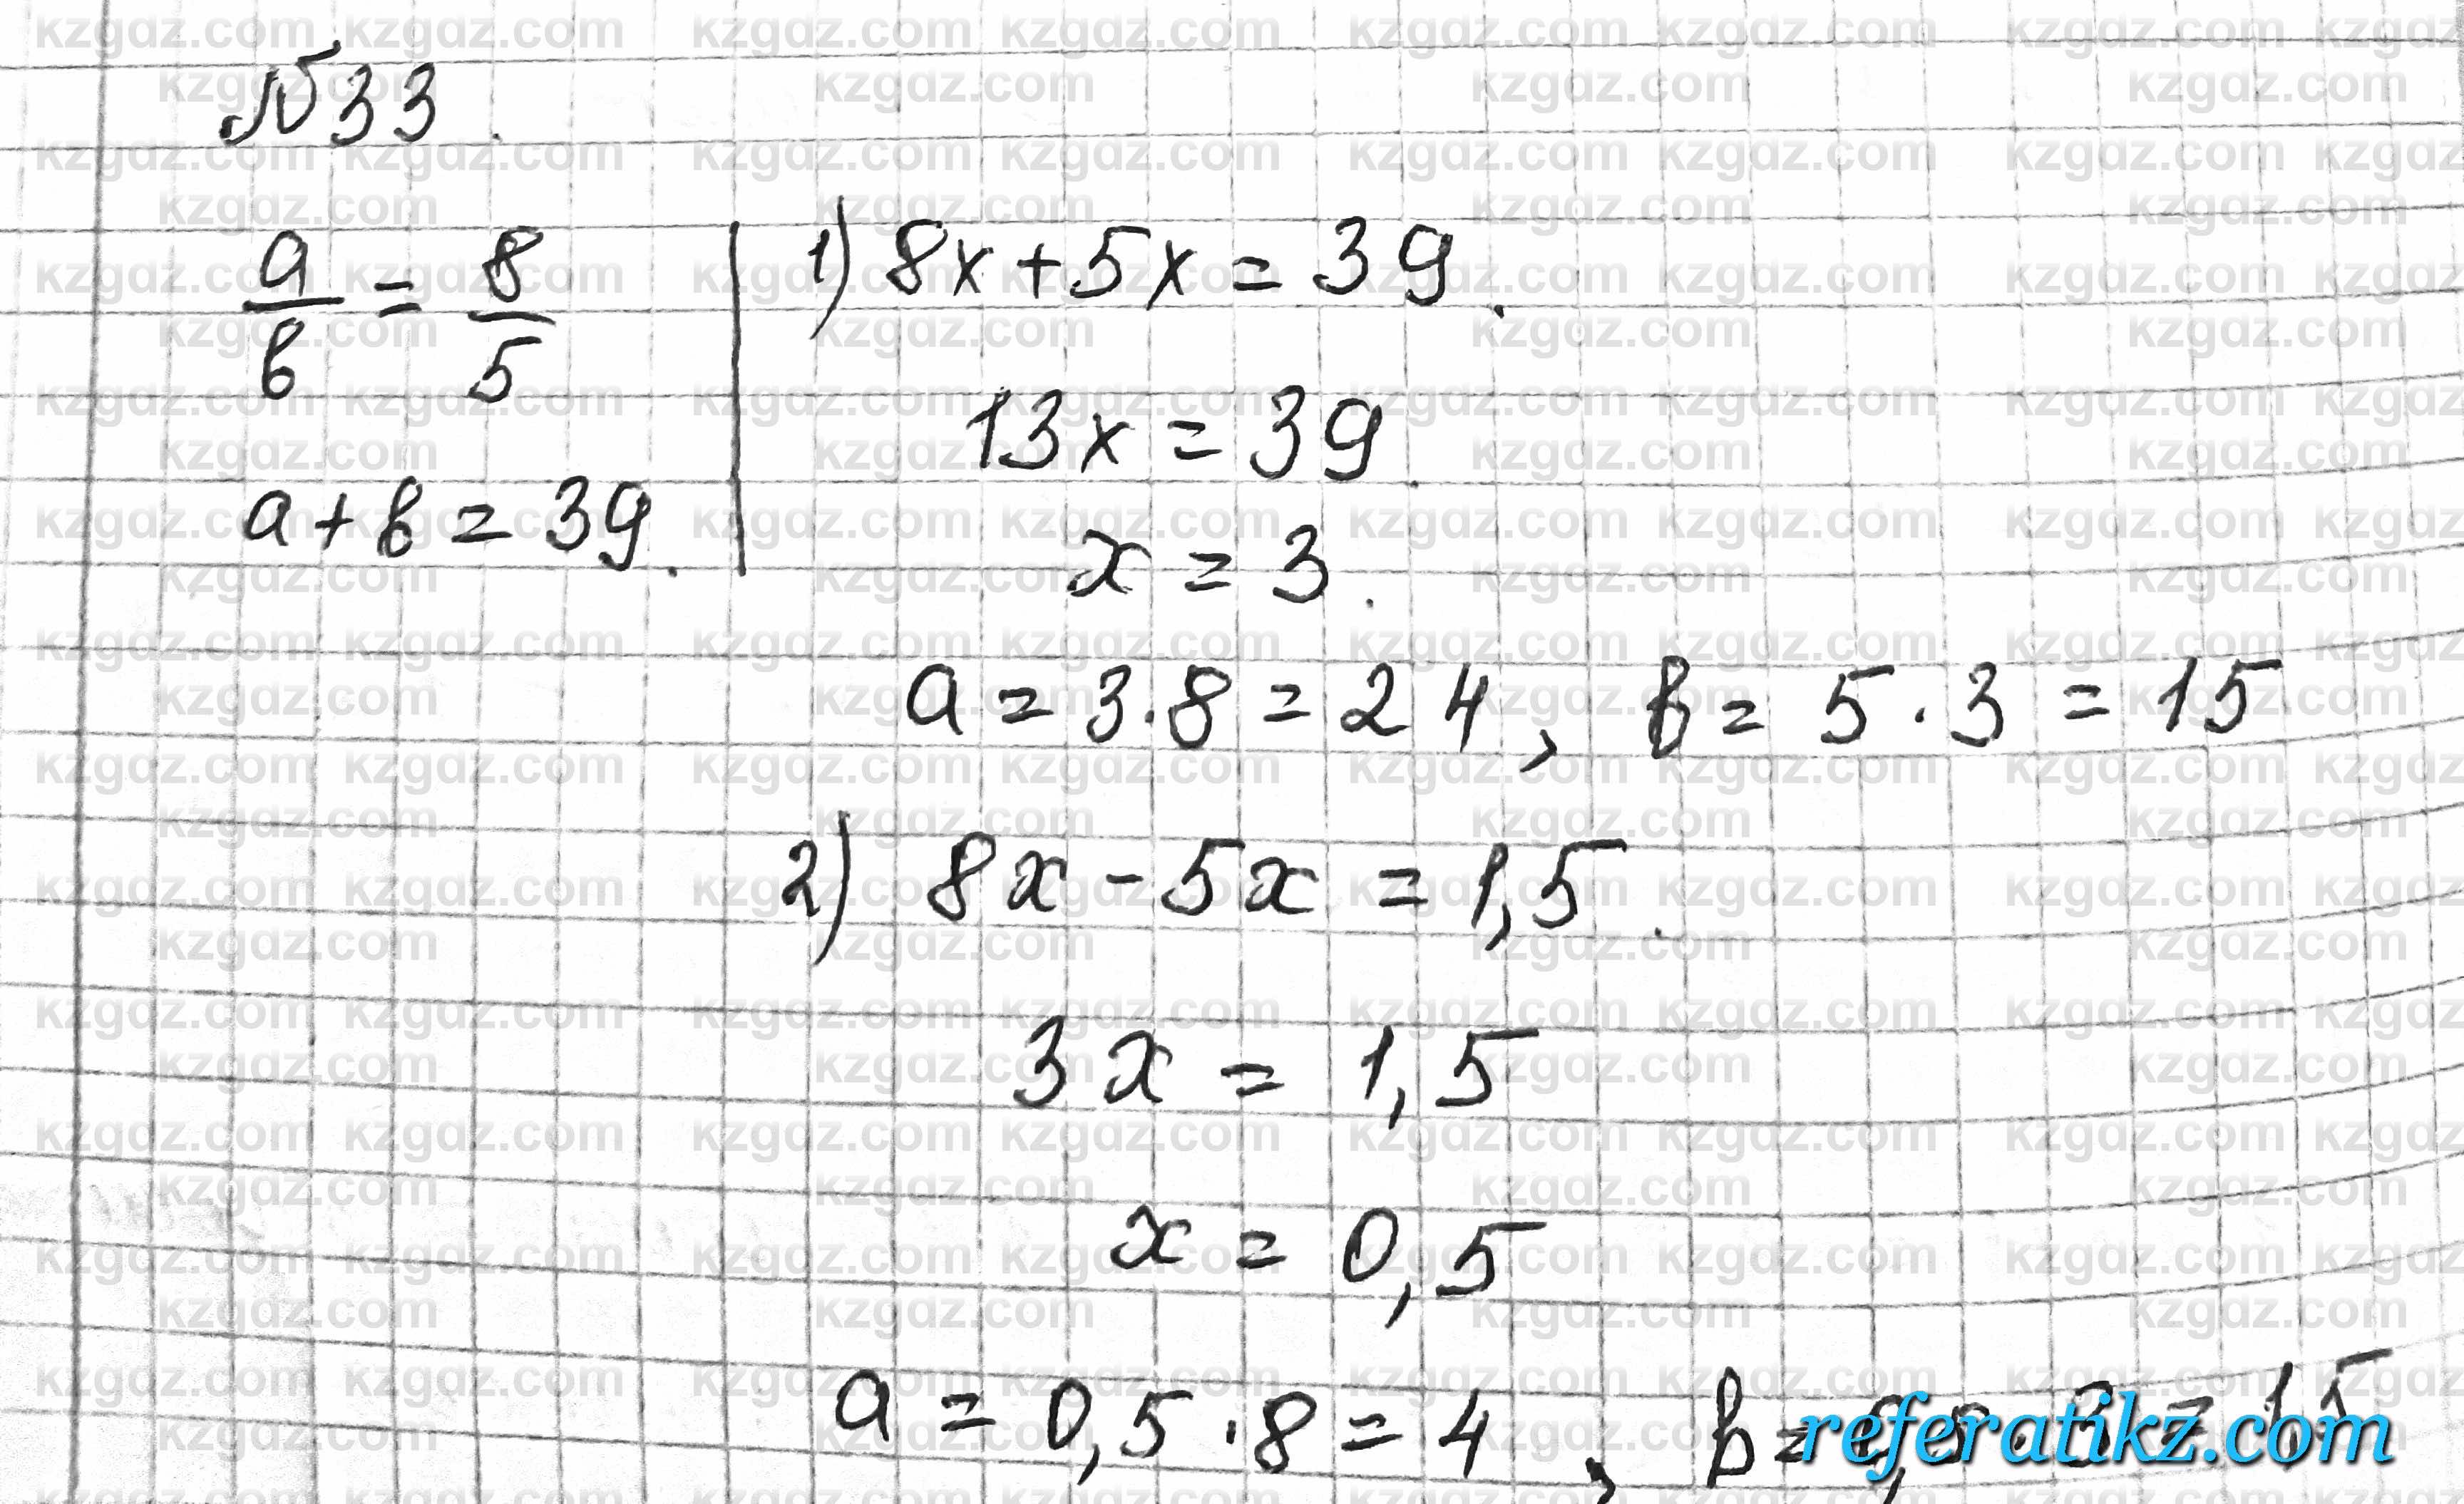 №33.
a/в = 8/5
a+в=39.
1) 8x+5x=39.
13x=39.
x=3.
a=3·8=24, в=5·3=15
2) 8x-5x=1,5.
3x=1,5
x=0,5
a=0,5·8=4, в=
referatikz.com
kzgdz.com